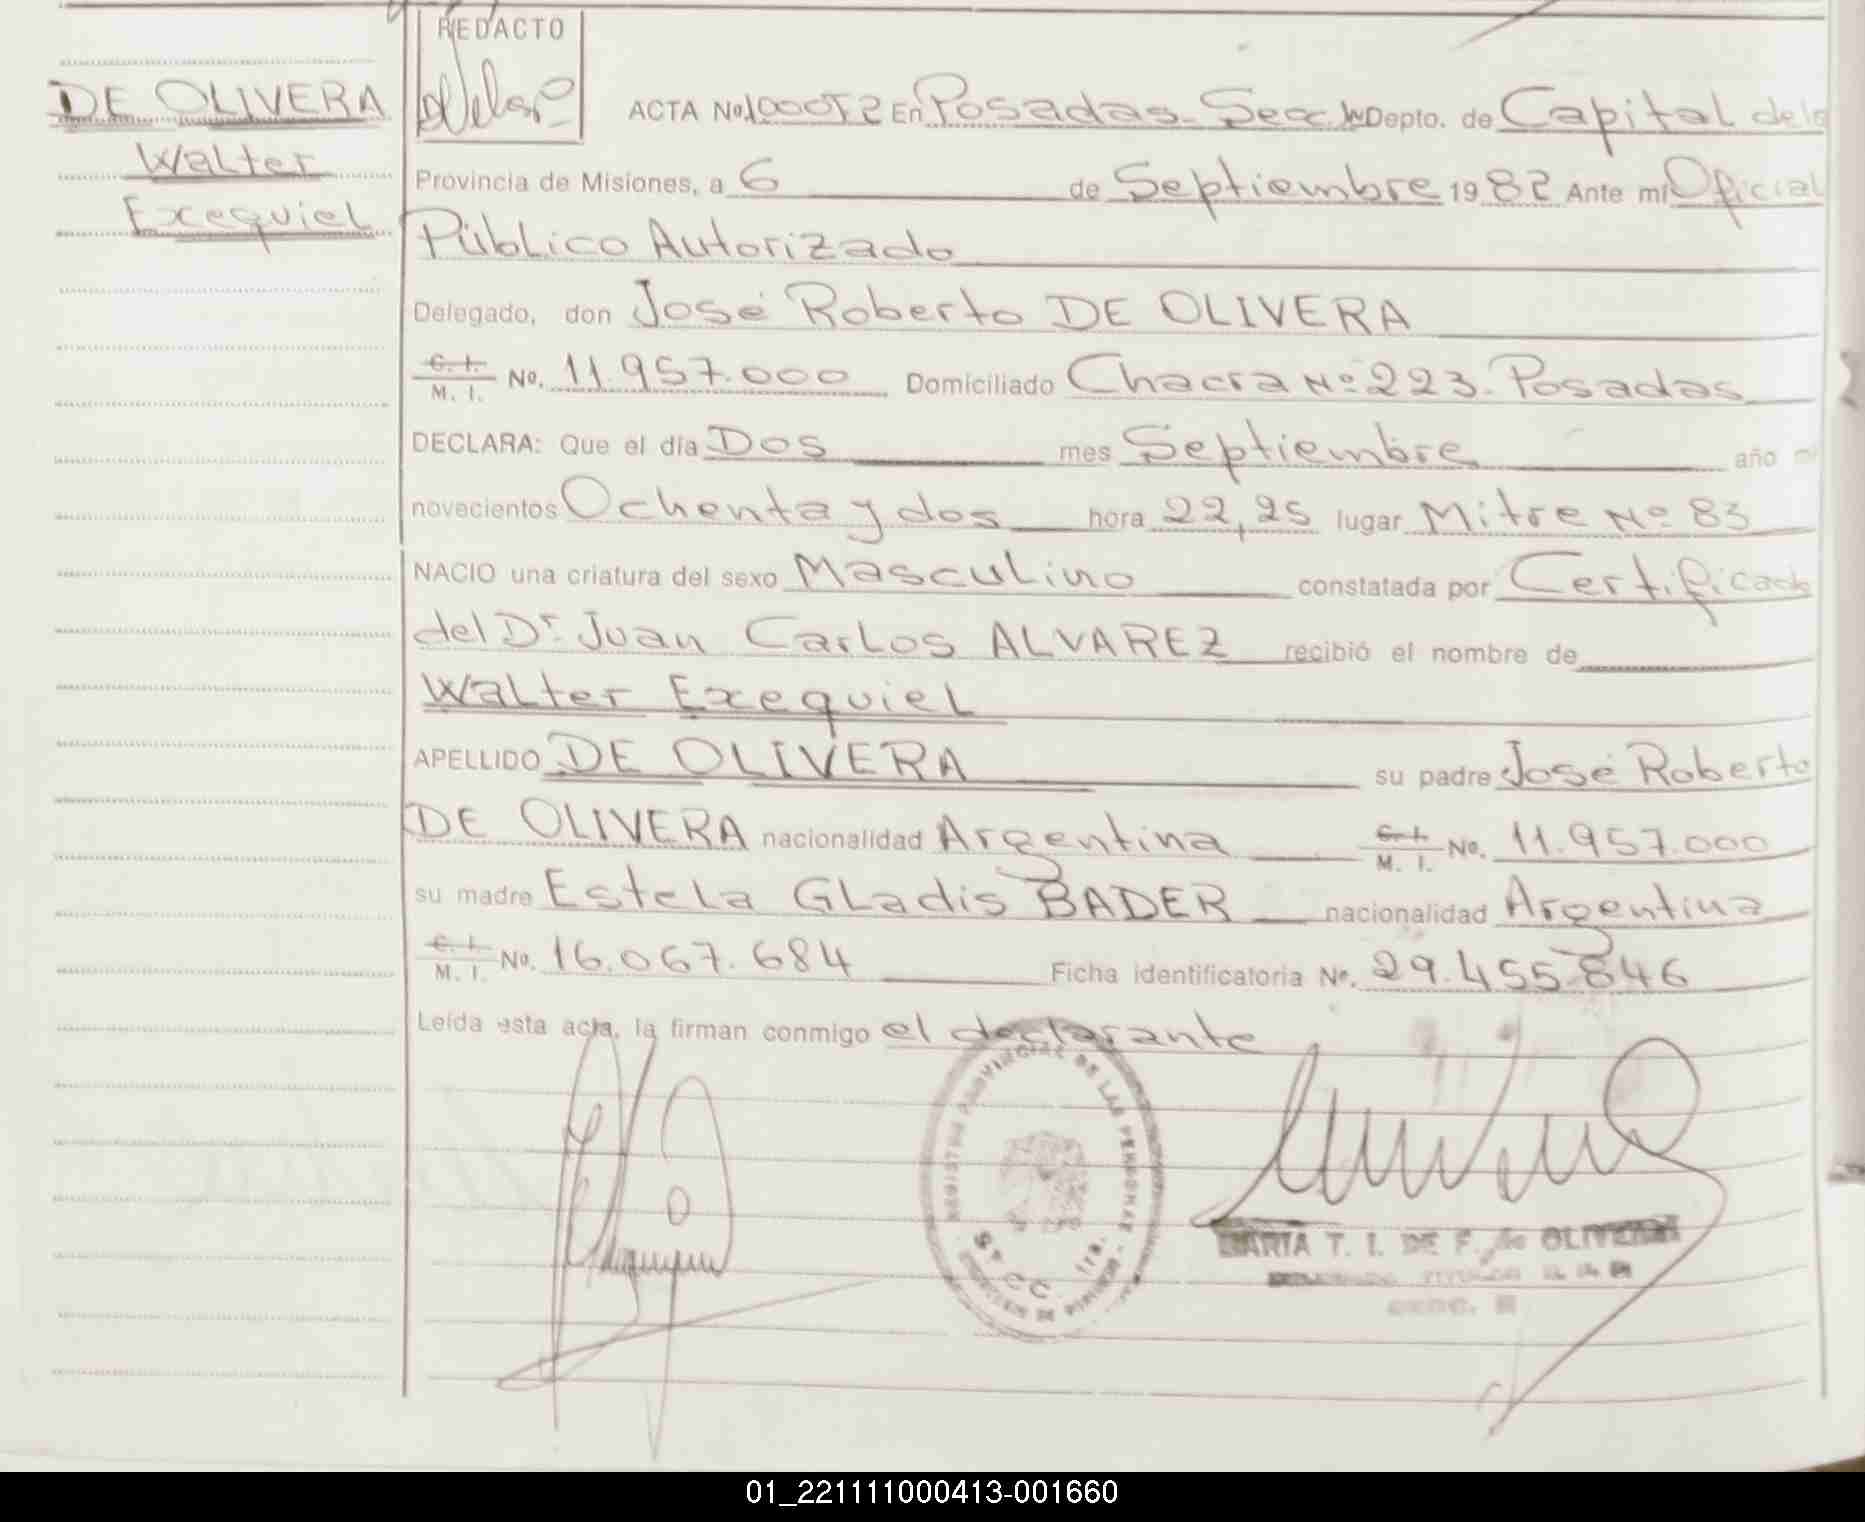 REDACTO
DE OLIVERA
Walter
Exequiel
ACTA No. En Posadas - Secc. Depto. de Capital de la
Provincia de Misiones, a 6 de Septiembre 1982 Ante mí Oficial
Público Autorizado
Delegado, don José Roberto DE OLIVERA
C. I.
M. I. No. 11.957.000 Domiciliado Chacra Nº 223. Posadas
DECLARA: Que el día Dos mes Septiembre año mi
novecientos Ochenta y dos hora 22,25 lugar Mitre Nº 83
NACIO una criatura del sexo Masculino constatada por Certificado
del Dr. Juan Carlos ALVAREZ recibió el nombre de
Walter Exequiel
APELLIDO DE OLIVERA su padre José Roberto
DE OLIVERA nacionalidad Argentina C. I.
M. I. No. 11.957.000
su madre Estela Gladis BADER nacionalidad Argentina
C. I.
M. I. No. 16.067.684 Ficha identificatoria No. 29.455.846
Leída esta acta, la firman conmigo el declarante
REGISTRO PROVINCIAL DE LAS PERSONAS
CC. 1ra.
MARIA T. I. DE F. de OLIVERA
01_221111000413-001660